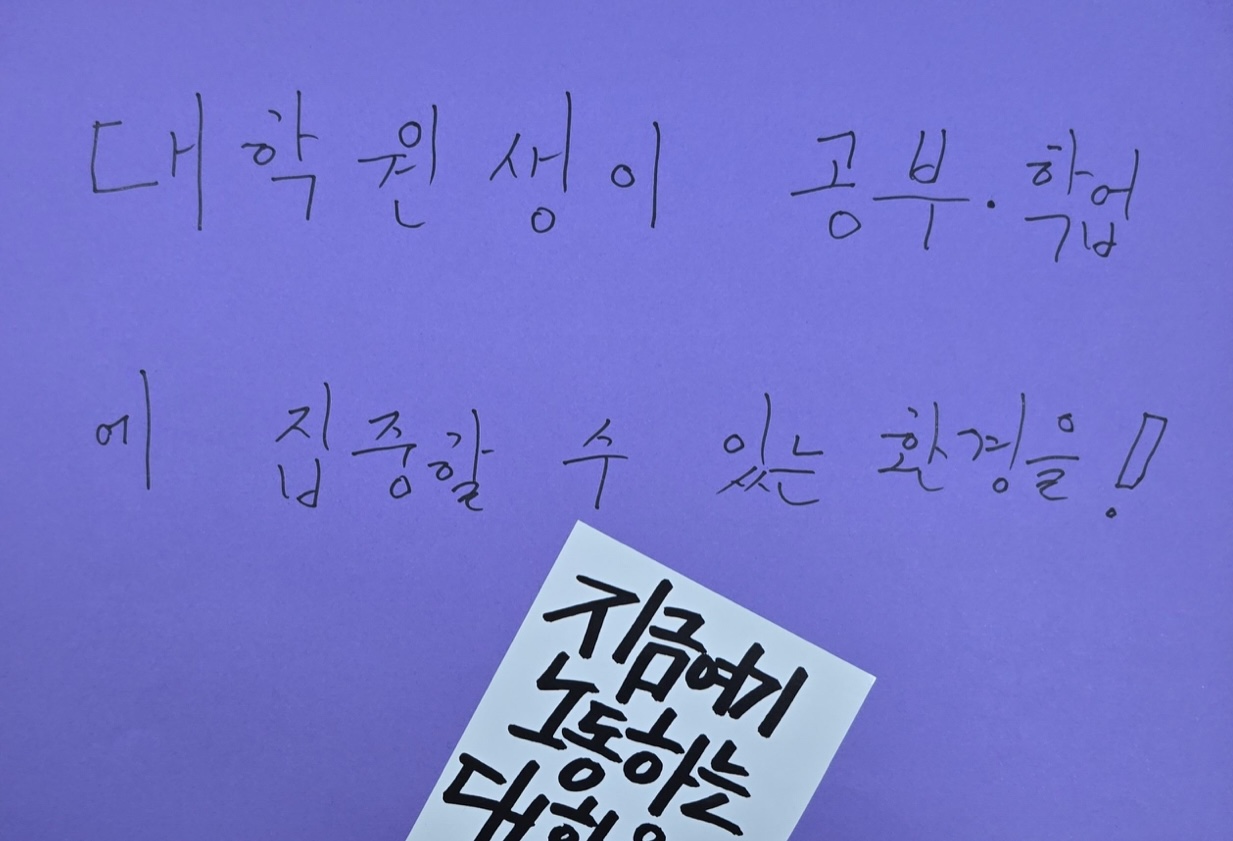 대학원생이 공부·학업
에 집중할 수 있는 환경을!
지금여기
노동하는